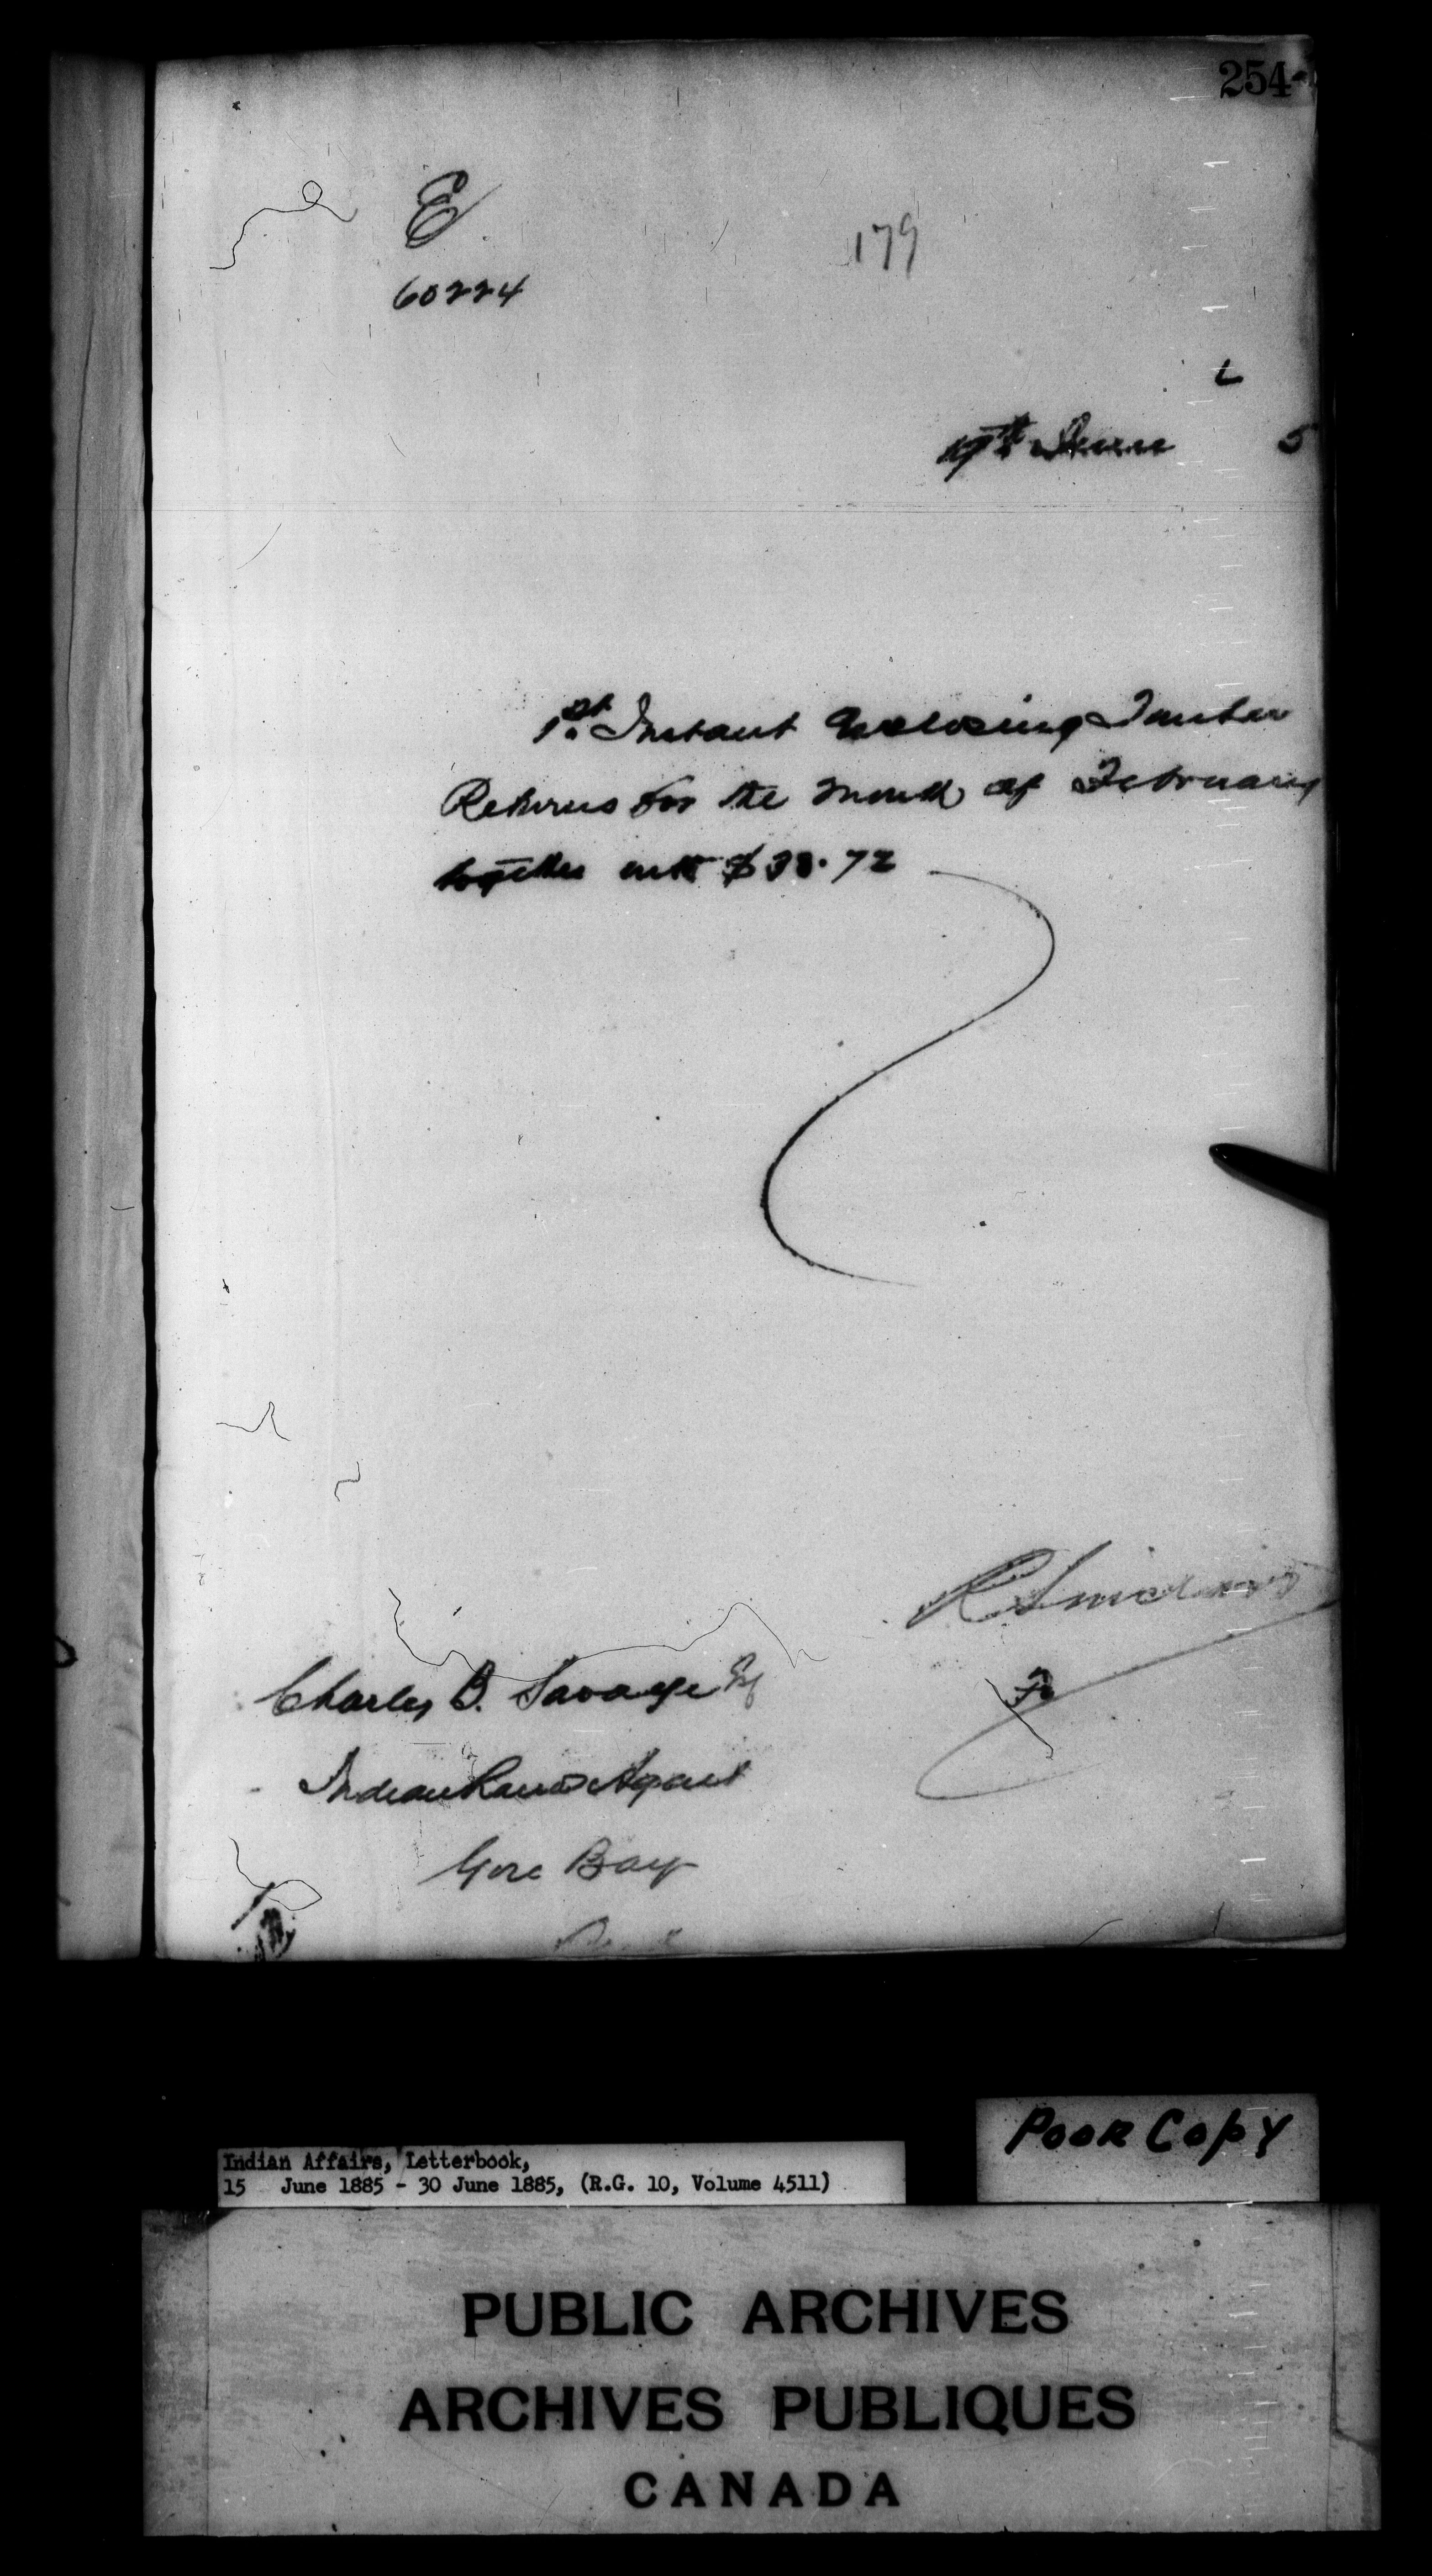 254
E
179
60224
June 5
1st Instant Enclosing Timber
Returns for the month of February
together with $38.72
R Sinclair
Fo
Charles B. Savage Esq
Indian Land Agent
Gore Bay
POOR COPY
Indian Affairs, Letterbook,
15 June 1885 - 30 June 1885, (R.G. 10, Volume 4511)
PUBLIC ARCHIVES
ARCHIVES PUBLIQUES
CANADA